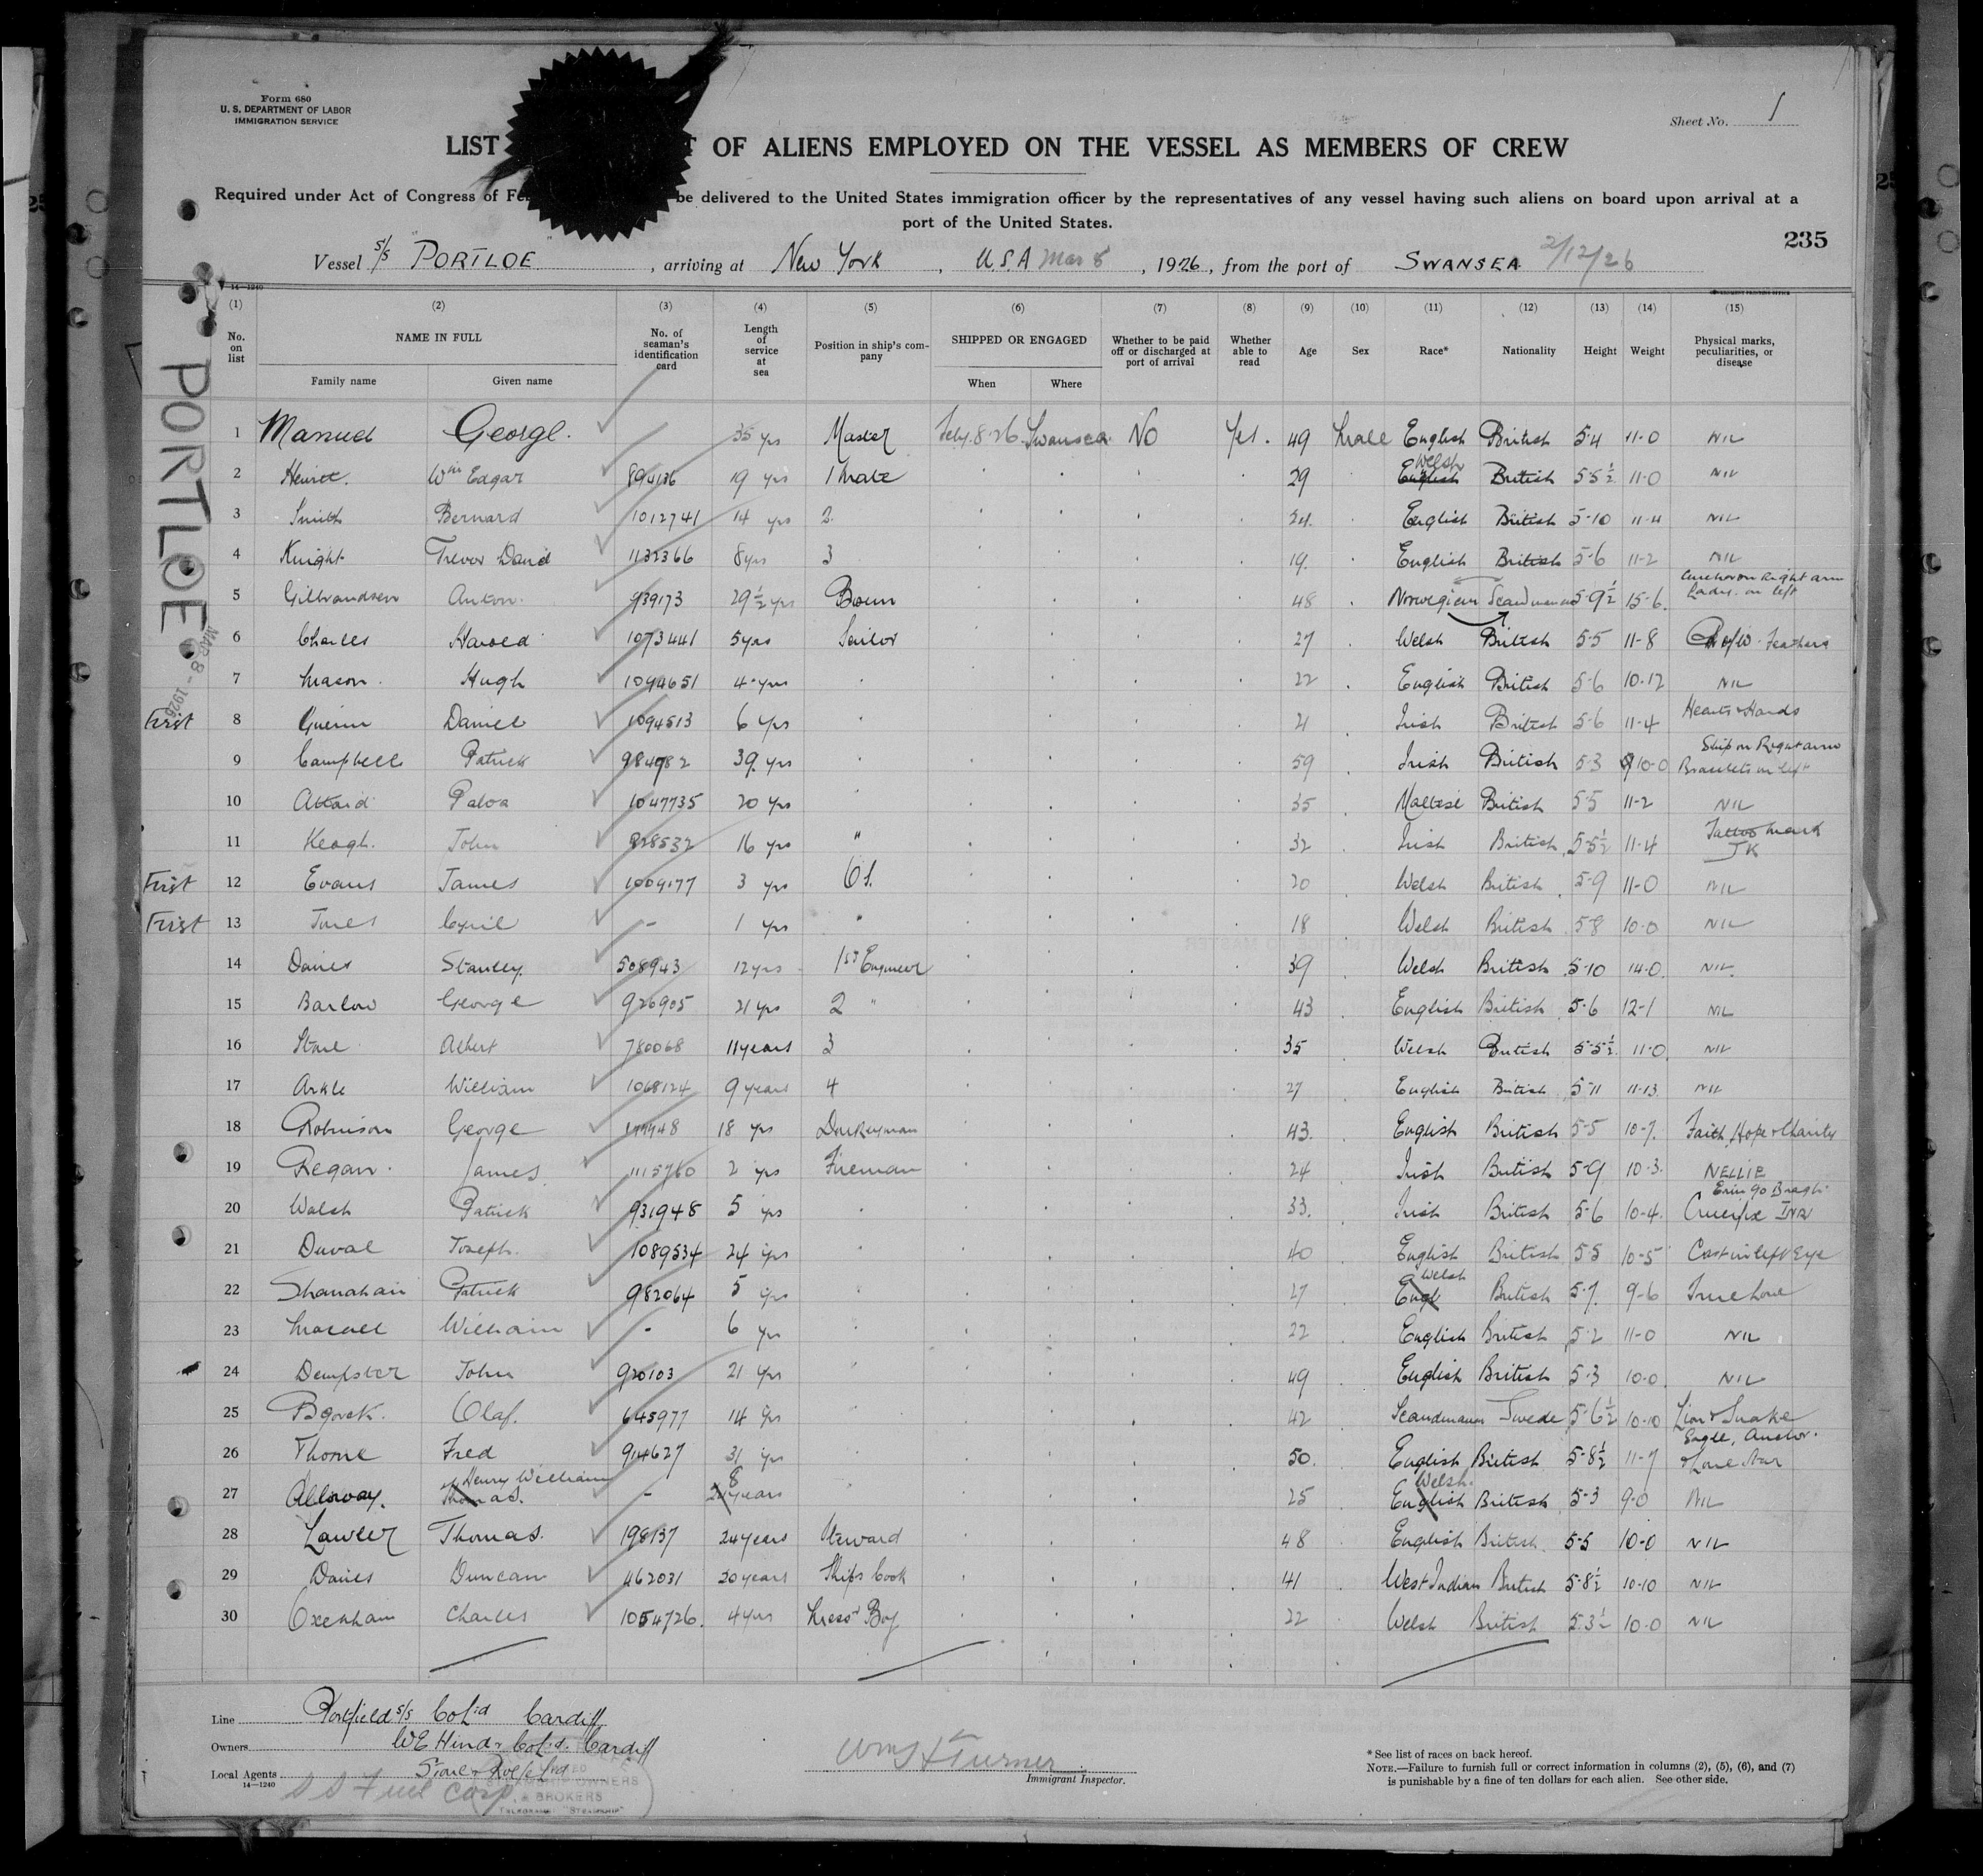 Form 680
U. S. DEPARTMENT OF LABOR
IMMIGRATION SERVICE
Sheet No. 1
LIST OF ALIENS EMPLOYED ON THE VESSEL AS MEMBERS OF CREW
Required under Act of Congress of be delivered to the United States immigration officer by the representatives of any vessel having such aliens on board upon arrival at a
port of the United States.
235
Vessel s/s "PORTLOE", arriving at New York, U.S.A Mar 8, 1926, from the port of SWANSEA 2/12/26
14—1240
(1) (2) (3) (4) (5) (6) (7) (8) (9) (10) (11) (12) (13) (14) (15)
No. on list NAME IN FULL No. of seaman's identification card Length of service at sea Position in ship's company SHIPPED OR ENGAGED Whether to be paid off or discharged at port of arrival Whether able to read Age Sex Race* Nationality Height Weight Physical marks, peculiarities, or disease
Family name Given name When Where
PORTLOE
MAR 8 - 1926
1 Manuel George. 35 yrs Master Feby. 8-26 Swansea No Yes. 49 Male English British 5-4 11-0 NIL
2 Hewitt. Wm Edgar 894136 19 yrs 1 Mate 29 English Welsh British 5-5½ 11-0 NIL
3 Smith Bernard 1012741 14 yrs 2. English British 5-10 11-4 NIL
4 Knight Trevor David 1132366 8 yrs 3 19. English British 5-6 11-2 NIL
5 Gilbrandsen Anton. 939173 29½ yrs Bosun 48 Norwegian 5-9½ 15-6. Anchor on Right arm
Lady. on left
6 Charles Harold 1073441 5 yrs Sailor 27 Welsh British 5-5 11-8 P of W. Feathers
7 Mason. Hugh 1094651 4 yrs 22 English British 5-6 10-12 NIL
First 8 Guerin Daniel 1094513 6 yrs 21 Irish British 5-6 11-4 Hearts & Hands
9 Campbell Patrick 984982 39 yrs 59 Irish British 5-3 10-0 Ship on Right arm
Bracelets on left
10 Attard 1047735 20 yrs 35 Maltese British 5-5 11-2 NIL
11 Keogh. John 828532 16 yrs " 32 Irish British 5-5½ 11-4 Tattoo Mark
JK
First 12 Evans James 1009177 3 yrs O.S. 20 Welsh British 5-9 11-0 NIL
First 13 Cyril - 1 yrs " 18 Welsh British 5-8 10-0 NIL
14 Davies Stanley. 508943 12 yrs 1st Engineer 39 Welsh British 5-10 14-0. NIL.
15 Barlow George 926905 21 yrs 2 " 43 English British 5-6 12-1 NIL
16 Stone Albert 780068 11 years 3 35 Welsh British 5-5½ 11-0 NIL
17 Arkle William 1068124 9 years 4 27 English British 5-11 11-13 NIL
18 Robinson George 18 yrs Donkeyman 43. English British 5-5 10-7. Faith, Hope & Charity
19 Regan. James 1115760 2 yrs Fireman 24 Irish British 5-9 10-3. NELLIE
20 Walsh Patrick 931948 5 yrs 33. Irish British 5-6 10-4. Erin go Bragh.
Crucifix INRI
21 Duval Joseph. 1089534 24 yrs 40 English British 5-5 10-5 Cast in left Eye
22 Shanahan Patrick 982064 5 yrs 27 Engl Welsh British 5-7. 9-6 True Love
23 William - 6 yrs 22 English British 5-2 11-0 NIL
24 Dempster John 920103 21 yrs 49 English British 5-3 10-0. NIL
25 Olaf. 645977 14 yrs 42 Scandinavian Swede 5-6½ 10-10 Lion & Snake
26 Thorne Fred 914627 31 yrs 50. English British 5-8½ 11-7 Eagle, Anchor.
& Lone Star
27 Alloway. Thomas. Henry William - 8 years 25 English Welsh. British 5-3 9-0 NIL
28 Lawler Thomas. 198137 24 years Steward 48 English British 5-5 10-0 NIL
29 Davies Duncan 462031 20 years Ships Cook 41 West Indian British 5-8½ 10-10 NIL
30 Oxenham Charles 1054726. 4 yrs Mess Boy 22 Welsh British 5-3½ 10-0 NIL
Line Portfield s/s Co Ltd Cardiff
Owners W E Hinds Co Ltd. Cardiff
Local Agents Stone & Rolfe Ltd
14—1240
S S Fuel Corp
OWNERS
& BROKERS
Wm H Turner
Immigrant Inspector.
* See list of races on back hereof.
NOTE.—Failure to furnish full or correct information in columns (2), (5), (6), and (7)
is punishable by a fine of ten dollars for each alien. See other side.